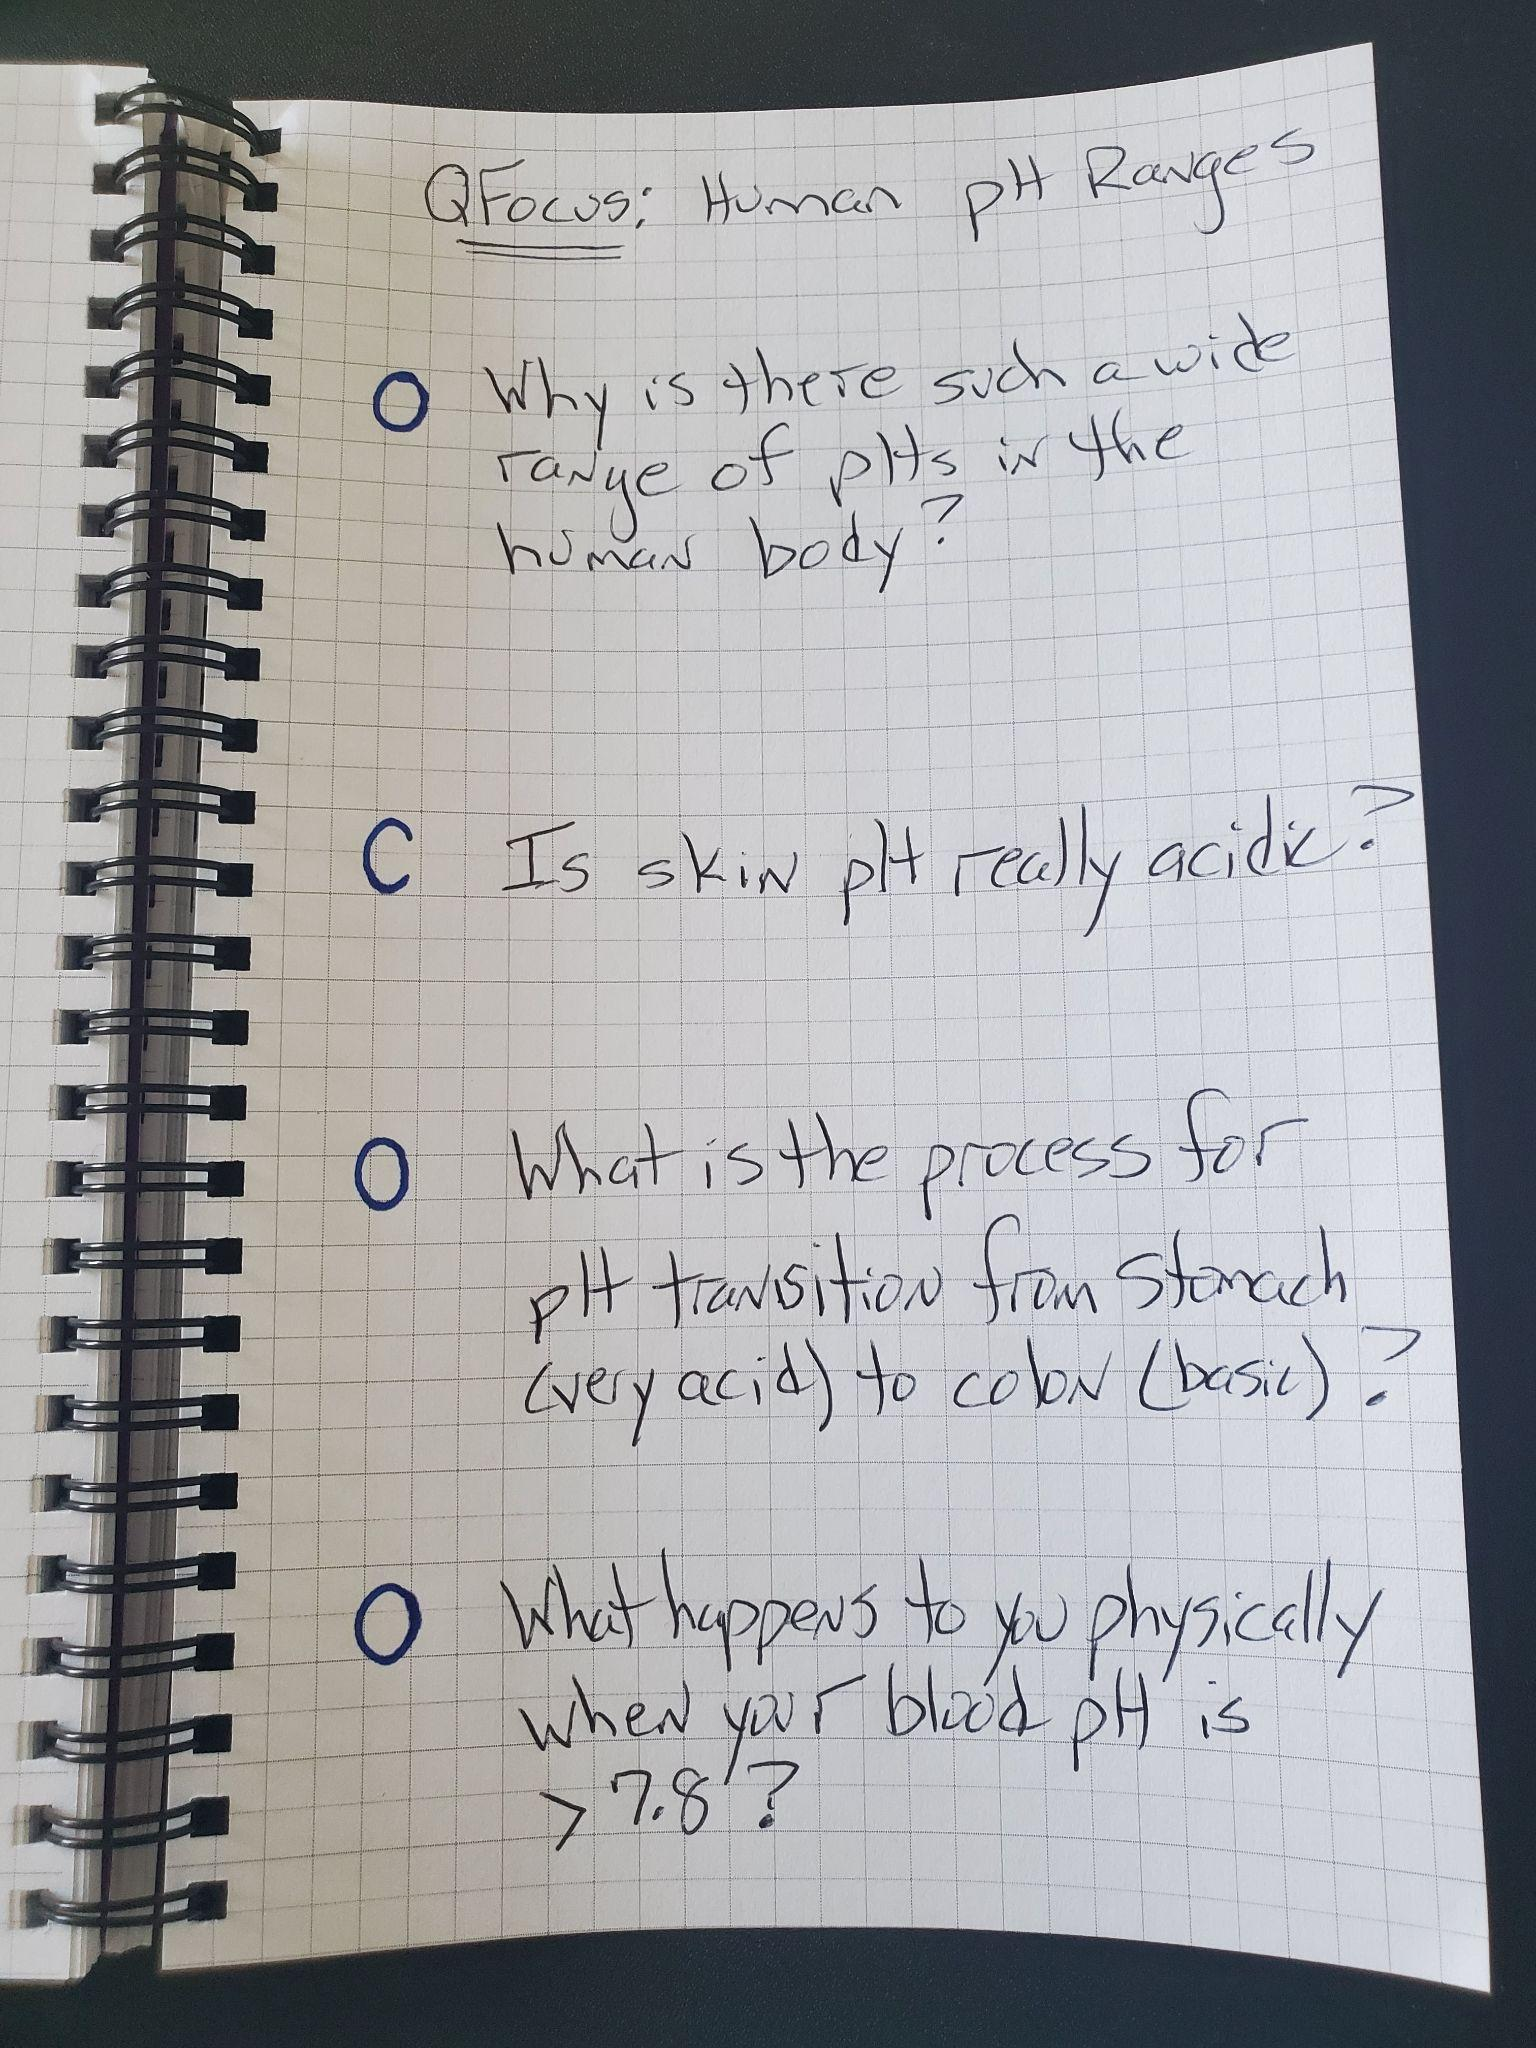 QFocus: Human pH Ranges
O Why is there such a wide
range of pHs in the
human body?
C Is skin pH really acidic?
O What is the process for
pH transition from stomach
(very acid) to colon (basic)?
O What happens to you physically
when your blood pH is
> 7.8?